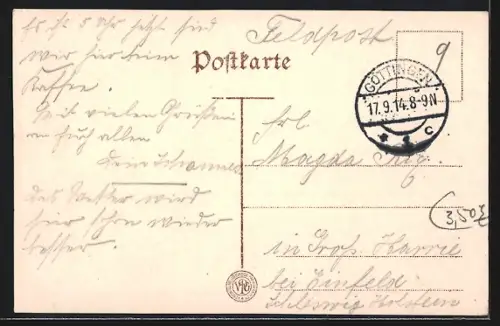 Es ist 5 Uhr jetzt sind
wir hier beim
Kaffee.
Seid vielen Grüssen
an Euch allen
Dein Johannes
das Wetter wird
hier schon wieder
besser.
Feldpost
9
Postkarte
GÖTTINGEN
17.9.14.8-9N
* c
Frl.
Magda
3,50
in Groß Harrie
bei Einfeld
Schleswig Holstein